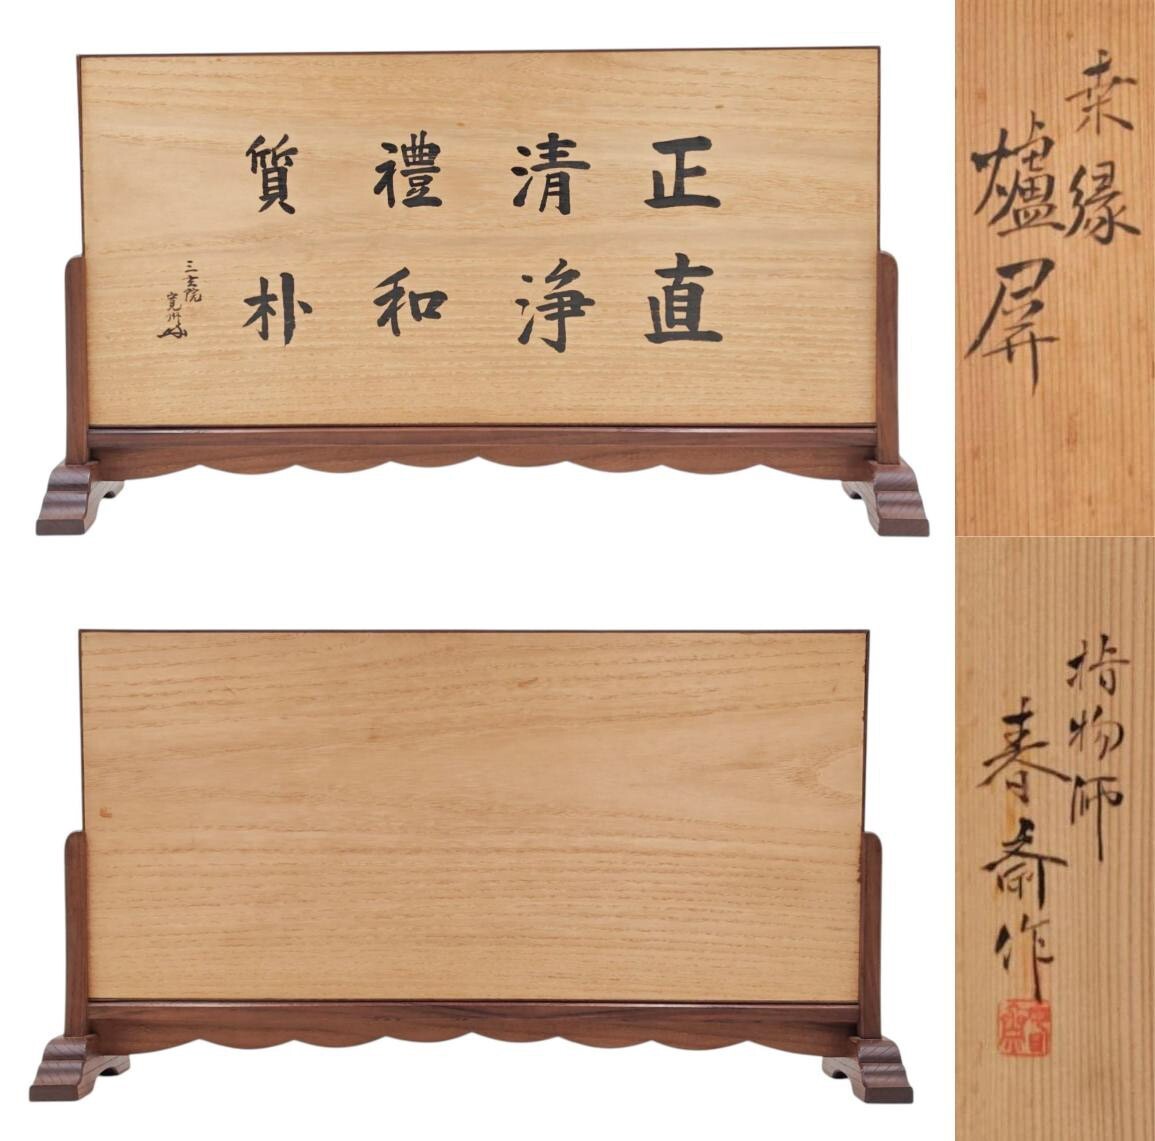 正直
清浄
禮和
質朴
三玄院
寛州
桑縁
爐屏
指物師
春斎作